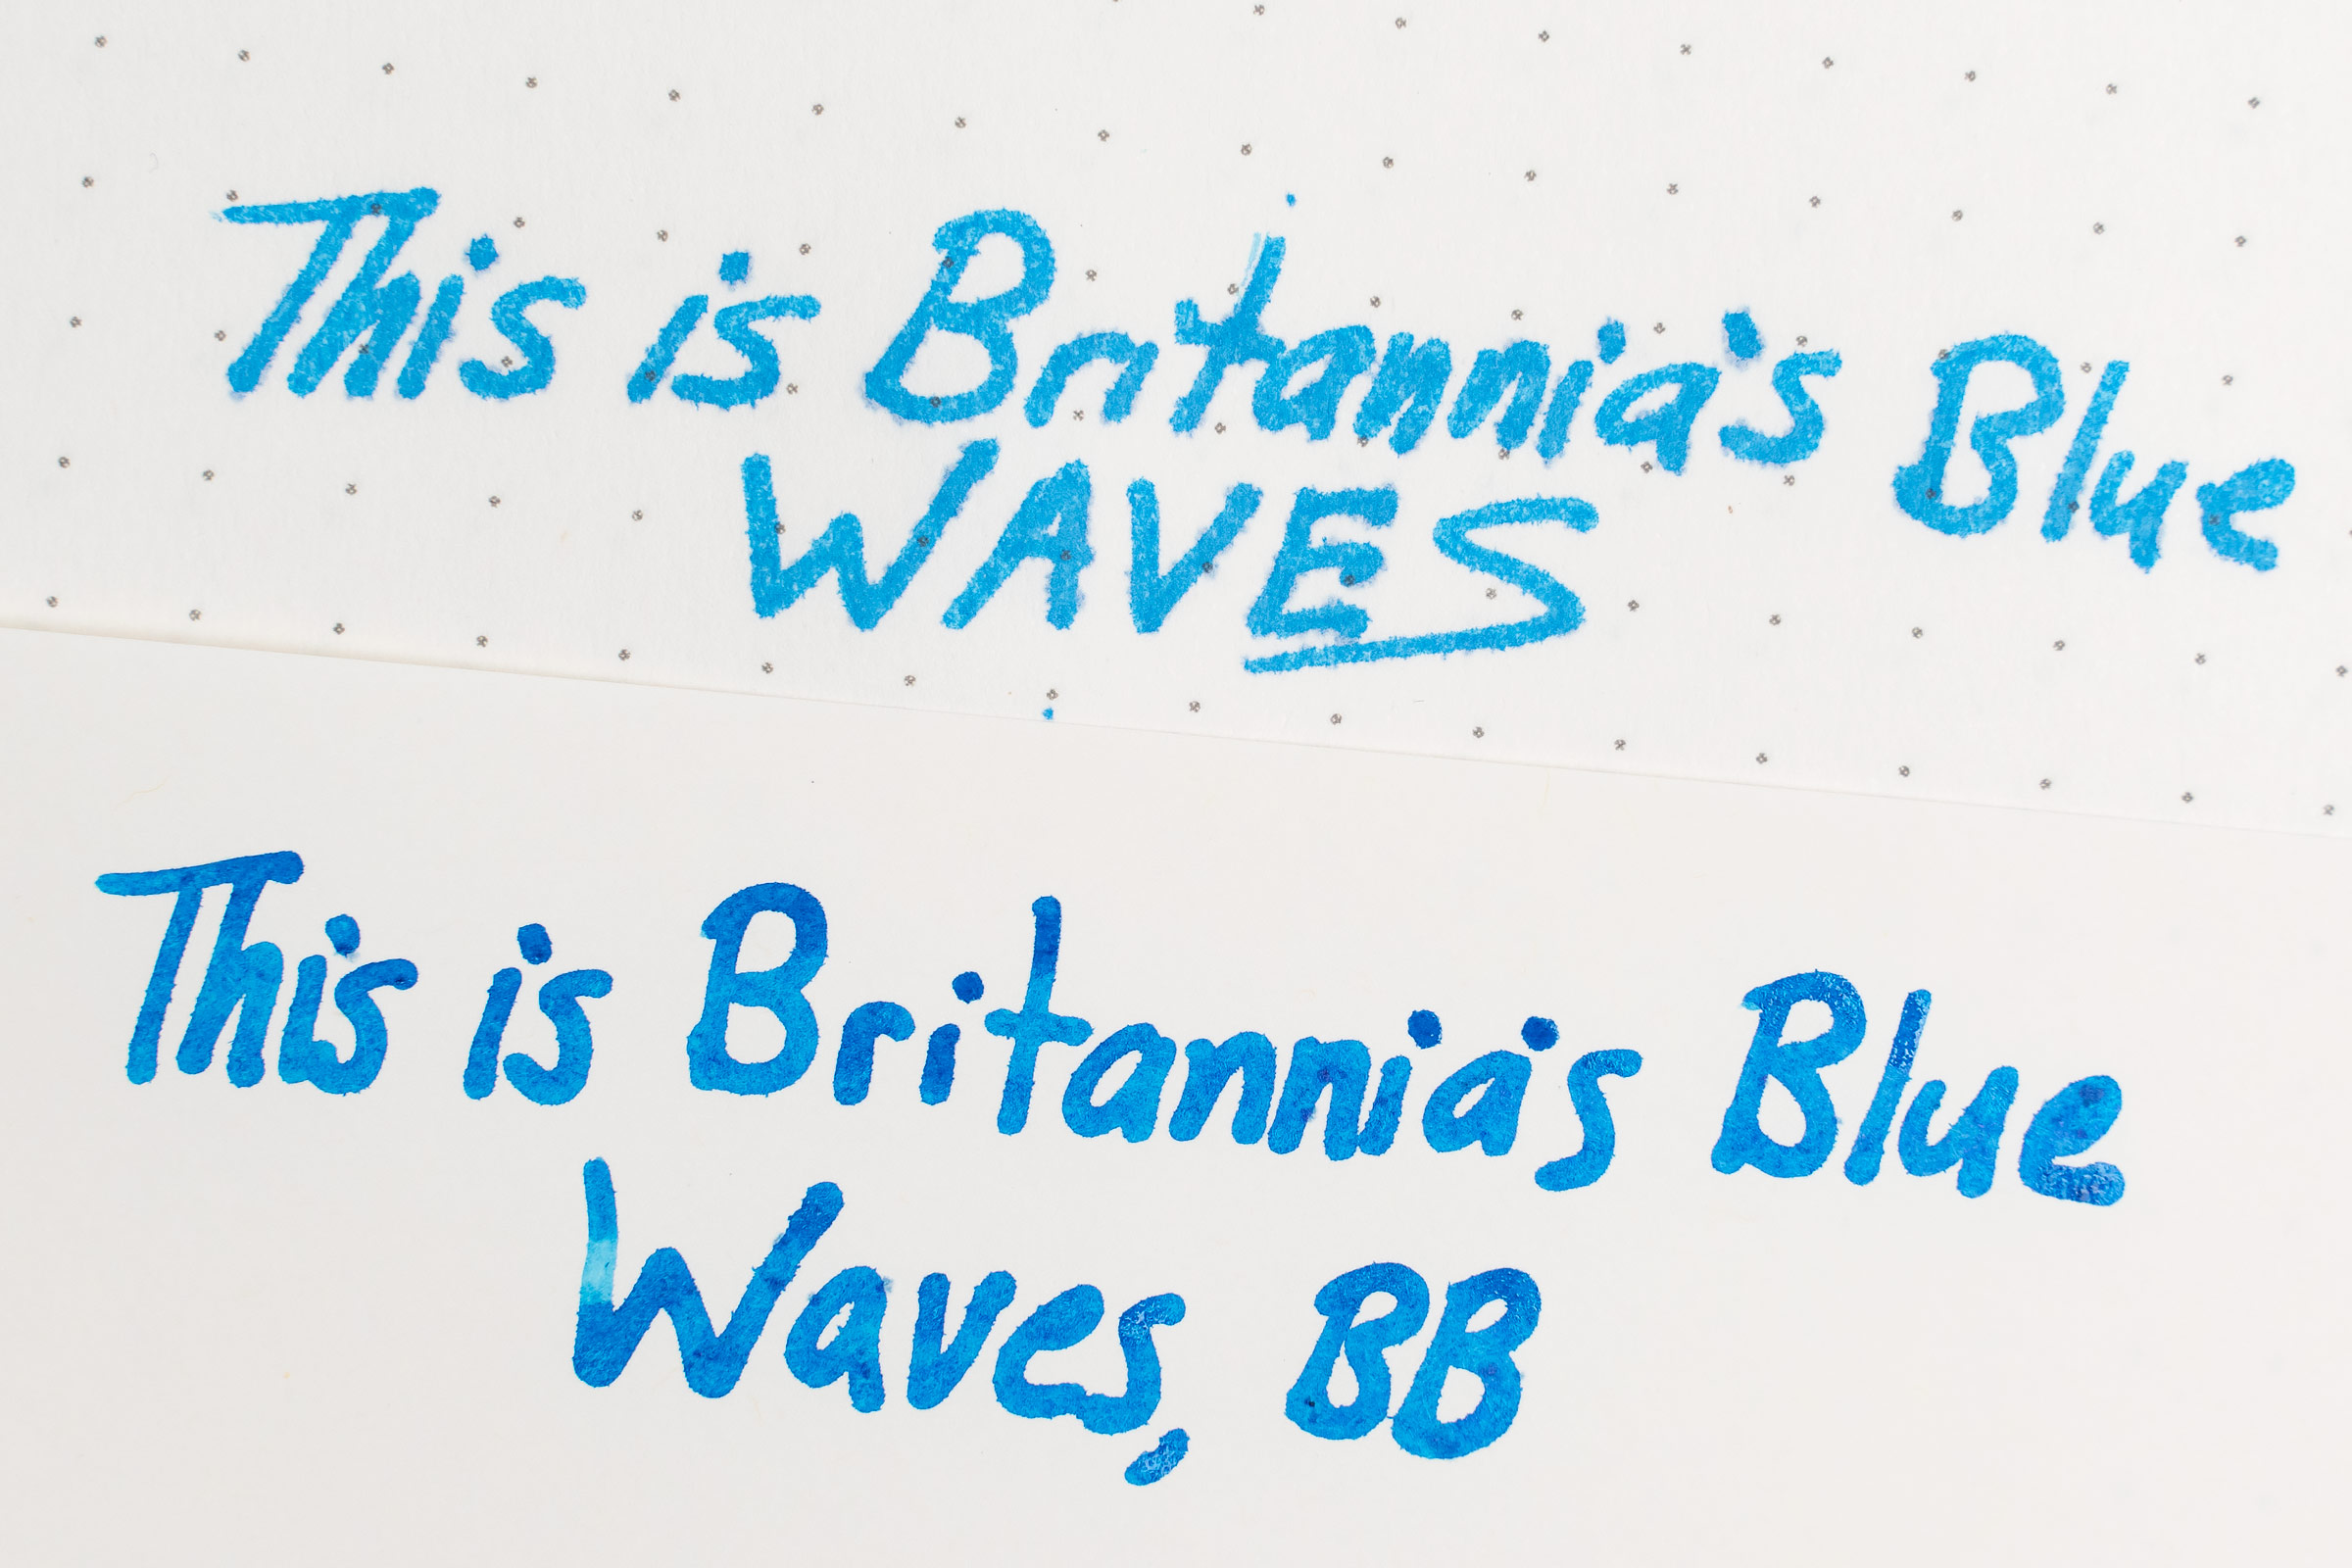 This is Britannia's Blue
WAVES
This is Britannia's Blue
Waves, BB